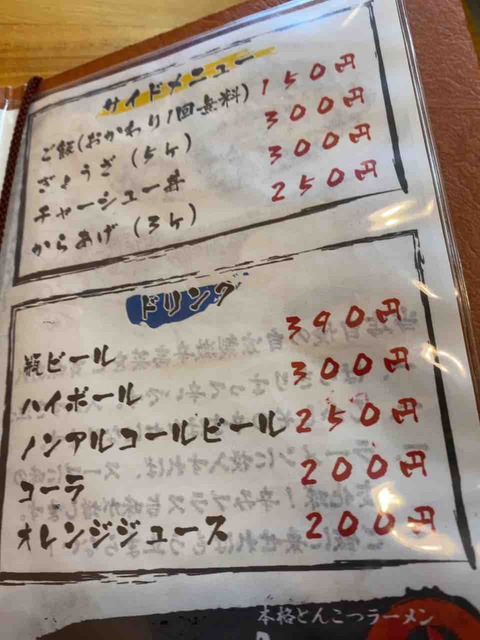 サイドメニュー
ご飯(おかわり1回無料) 150円
ぎょうざ(5ヶ) 300円
チャーシュー丼 300円
からあげ(3ヶ) 250円
ドリンク
瓶ビール 390円
ハイボール 300円
ノンアルコールビール 250円
コーラ 200円
オレンジジュース 200円
本格とんこつラーメン